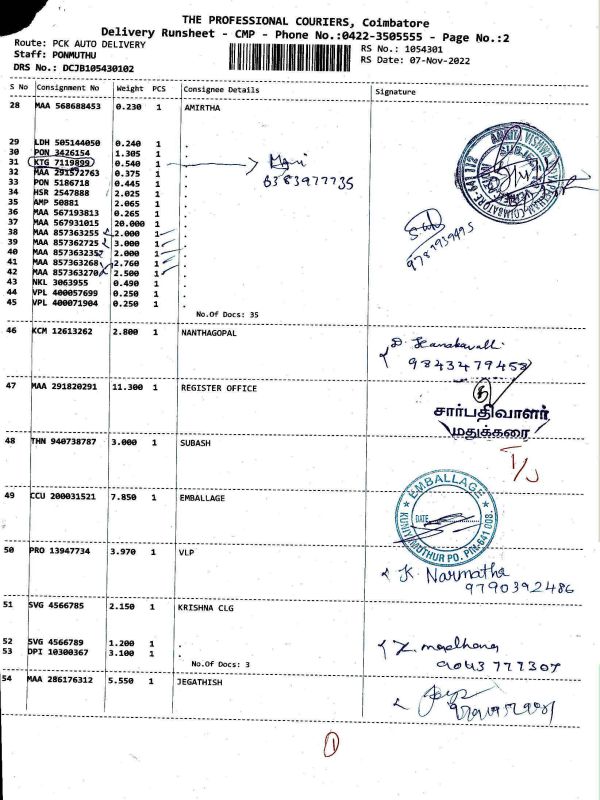 THE PROFESSIONAL COURIERS, Coimbatore
Delivery Runsheet - CMP - Phone No.:0422-3505555 - Page No.:2
Route: PCK AUTO DELIVERY
RS No.: 1054301
Staff: PONMUTHU
RS Date: 07-Nov-2022
DRS No.: DCJB105430102
S No Consignment No Weight PCS Consignee Details Signature
28 MAA 568688453 0.230 1 AMIRTHA
29 LDH 505144050 0.240 1 .
30 PON 3426154 1.305 1 .
31 KTG 7119899 0.540 1 . Mani
6383977735
32 MAA 291572763 0.375 1 .
33 PON 5186718 0.445 1 .
34 HSR 2547888 2.025 1 .
35 AMP 50881 2.065 1 .
36 MAA 567193813 0.265 1 .
37 MAA 567931015 20.000 1 .
38 MAA 857363255 2.000 1 .
39 MAA 857362725 3.000 1 .
40 MAA 857363235 2.000 1 .
41 MAA 857363268 2.760 1 .
42 MAA 857363270 2.500 1 .
43 NKL 3063955 0.490 1 .
44 VPL 400057699 0.250 1 .
45 VPL 400071904 0.250 1 .
No.Of Docs: 35
46 KCM 12613262 2.800 1 NANTHAGOPAL
9843479458
47 MAA 291820291 11.300 1 REGISTER OFFICE
சார்பதிவாளர்
மதுக்கரை
48 THN 940738787 3.000 1 SUBASH
49 CCU 200031521 7.850 1 EMBALLAGE
EMBALLAGE
DATE
KUNIYAMUTHUR PO. PIN-641 008.
50 PRO 13947734 3.970 1 VLP
K. Narmatha
9790392486
51 SVG 4566785 2.150 1 KRISHNA CLG
52 SVG 4566789 1.200 1 .
53 DPI 10300367 3.100 1 .
No.Of Docs: 3
9043777307
54 MAA 286176312 5.550 1 JEGATHISH
1